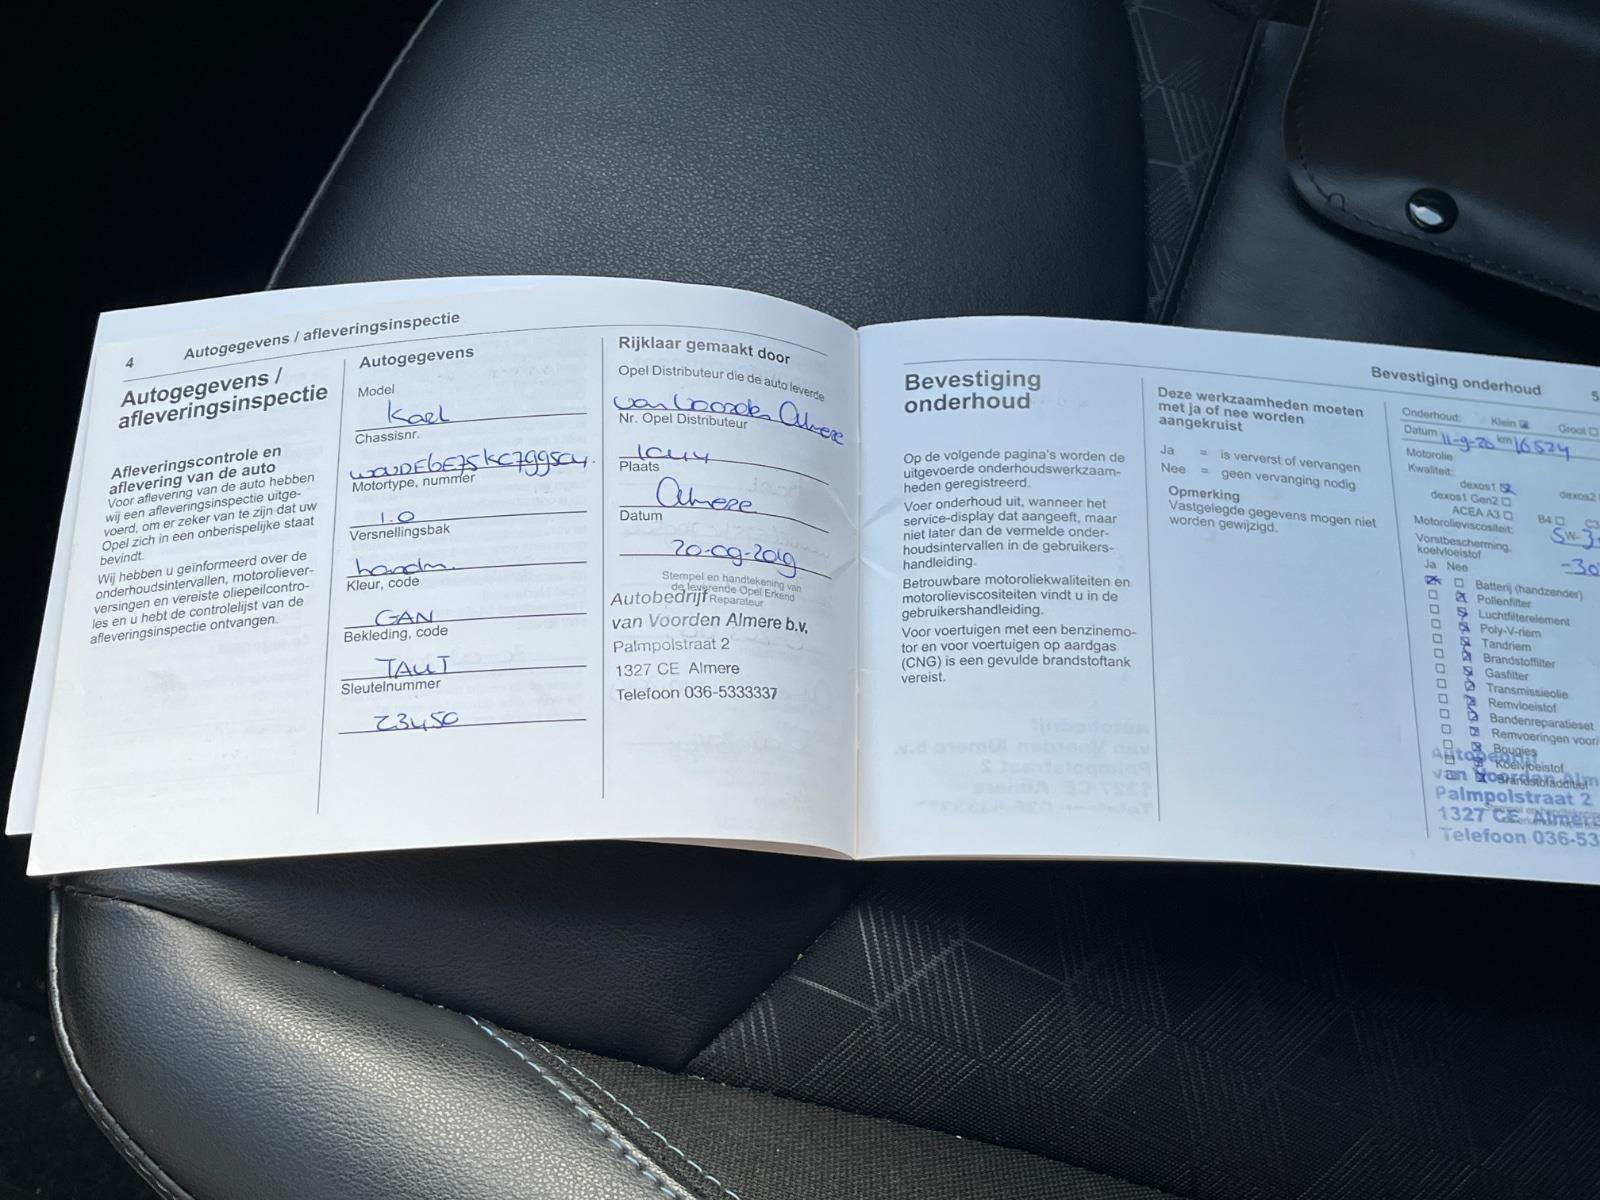 4 Autogegevens / afleveringsinspectie
Autogegevens /
afleveringsinspectie
Afleveringscontrole en
aflevering van de auto
Voor aflevering van de auto hebben
wij een afleveringsinspectie uitge-
voerd, om er zeker van te zijn dat uw
Opel zich in een onberispelijke staat
bevindt.
Wij hebben u geïnformeerd over de
onderhoudsintervallen, motoroliever-
versingen en vereiste oliepeilcontro-
les en u hebt de controlelijst van de
afleveringsinspectie ontvangen.
Autogegevens
Model
Karl
Chassisnr.
Motortype, nummer
1.0
Versnellingsbak
handm.
Kleur, code
GAN
Bekleding, code
TAUT
Sleutelnummer
23450
Rijklaar gemaakt door
Opel Distributeur die de auto leverde
van Voorden Almere
Nr. Opel Distributeur
Plaats
Almere
Datum
20-09-2019
Stempel en handtekening van
de leverende Opel Erkend
Reparateur
Autobedrijf
van Voorden Almere b.v.
Palmpolstraat 2
1327 CE Almere
Telefoon 036-5333337
Bevestiging onderhoud 5
Bevestiging
onderhoud
Op de volgende pagina's worden de
uitgevoerde onderhoudswerkzaam-
heden geregistreerd.
Voer onderhoud uit, wanneer het
service-display dat aangeeft, maar
niet later dan de vermelde onder-
houdsintervallen in de gebruikers-
handleiding.
Betrouwbare motoroliekwaliteiten en
motorolieviscositeiten vindt u in de
gebruikershandleiding.
Voor voertuigen met een benzinemo-
tor en voor voertuigen op aardgas
(CNG) is een gevulde brandstoftank
vereist.
Deze werkzaamheden moeten
met ja of nee worden
aangekruist
Ja = is ververst of vervangen
Nee = geen vervanging nodig
Opmerking
Vastgelegde gegevens mogen niet
worden gewijzigd.
Onderhoud: Klein Groot
Datum 11-9-20 km 16524
Motorolie
Kwaliteit:
dexos1 dexos2
dexos1 Gen2
ACEA A3 B4 C3
Motorolieviscositeit: 5W-3
Vorstbescherming.
koelvloeistof -30
Ja Nee
Batterij (handzender)
Pollenfilter
Luchtfilterelement
Poly-V-riem
Tandriem
Brandstoffilter
Gasfilter
Transmissieolie
Remvloeistof
Bandenreparatieset
Remvoeringen voor/
Bougies
Koelvloeistof
Brandstofadditief
Autobedrijf
van Voorden Alm
Palmpolstraat 2
1327 CE Almere
Telefoon 036-53